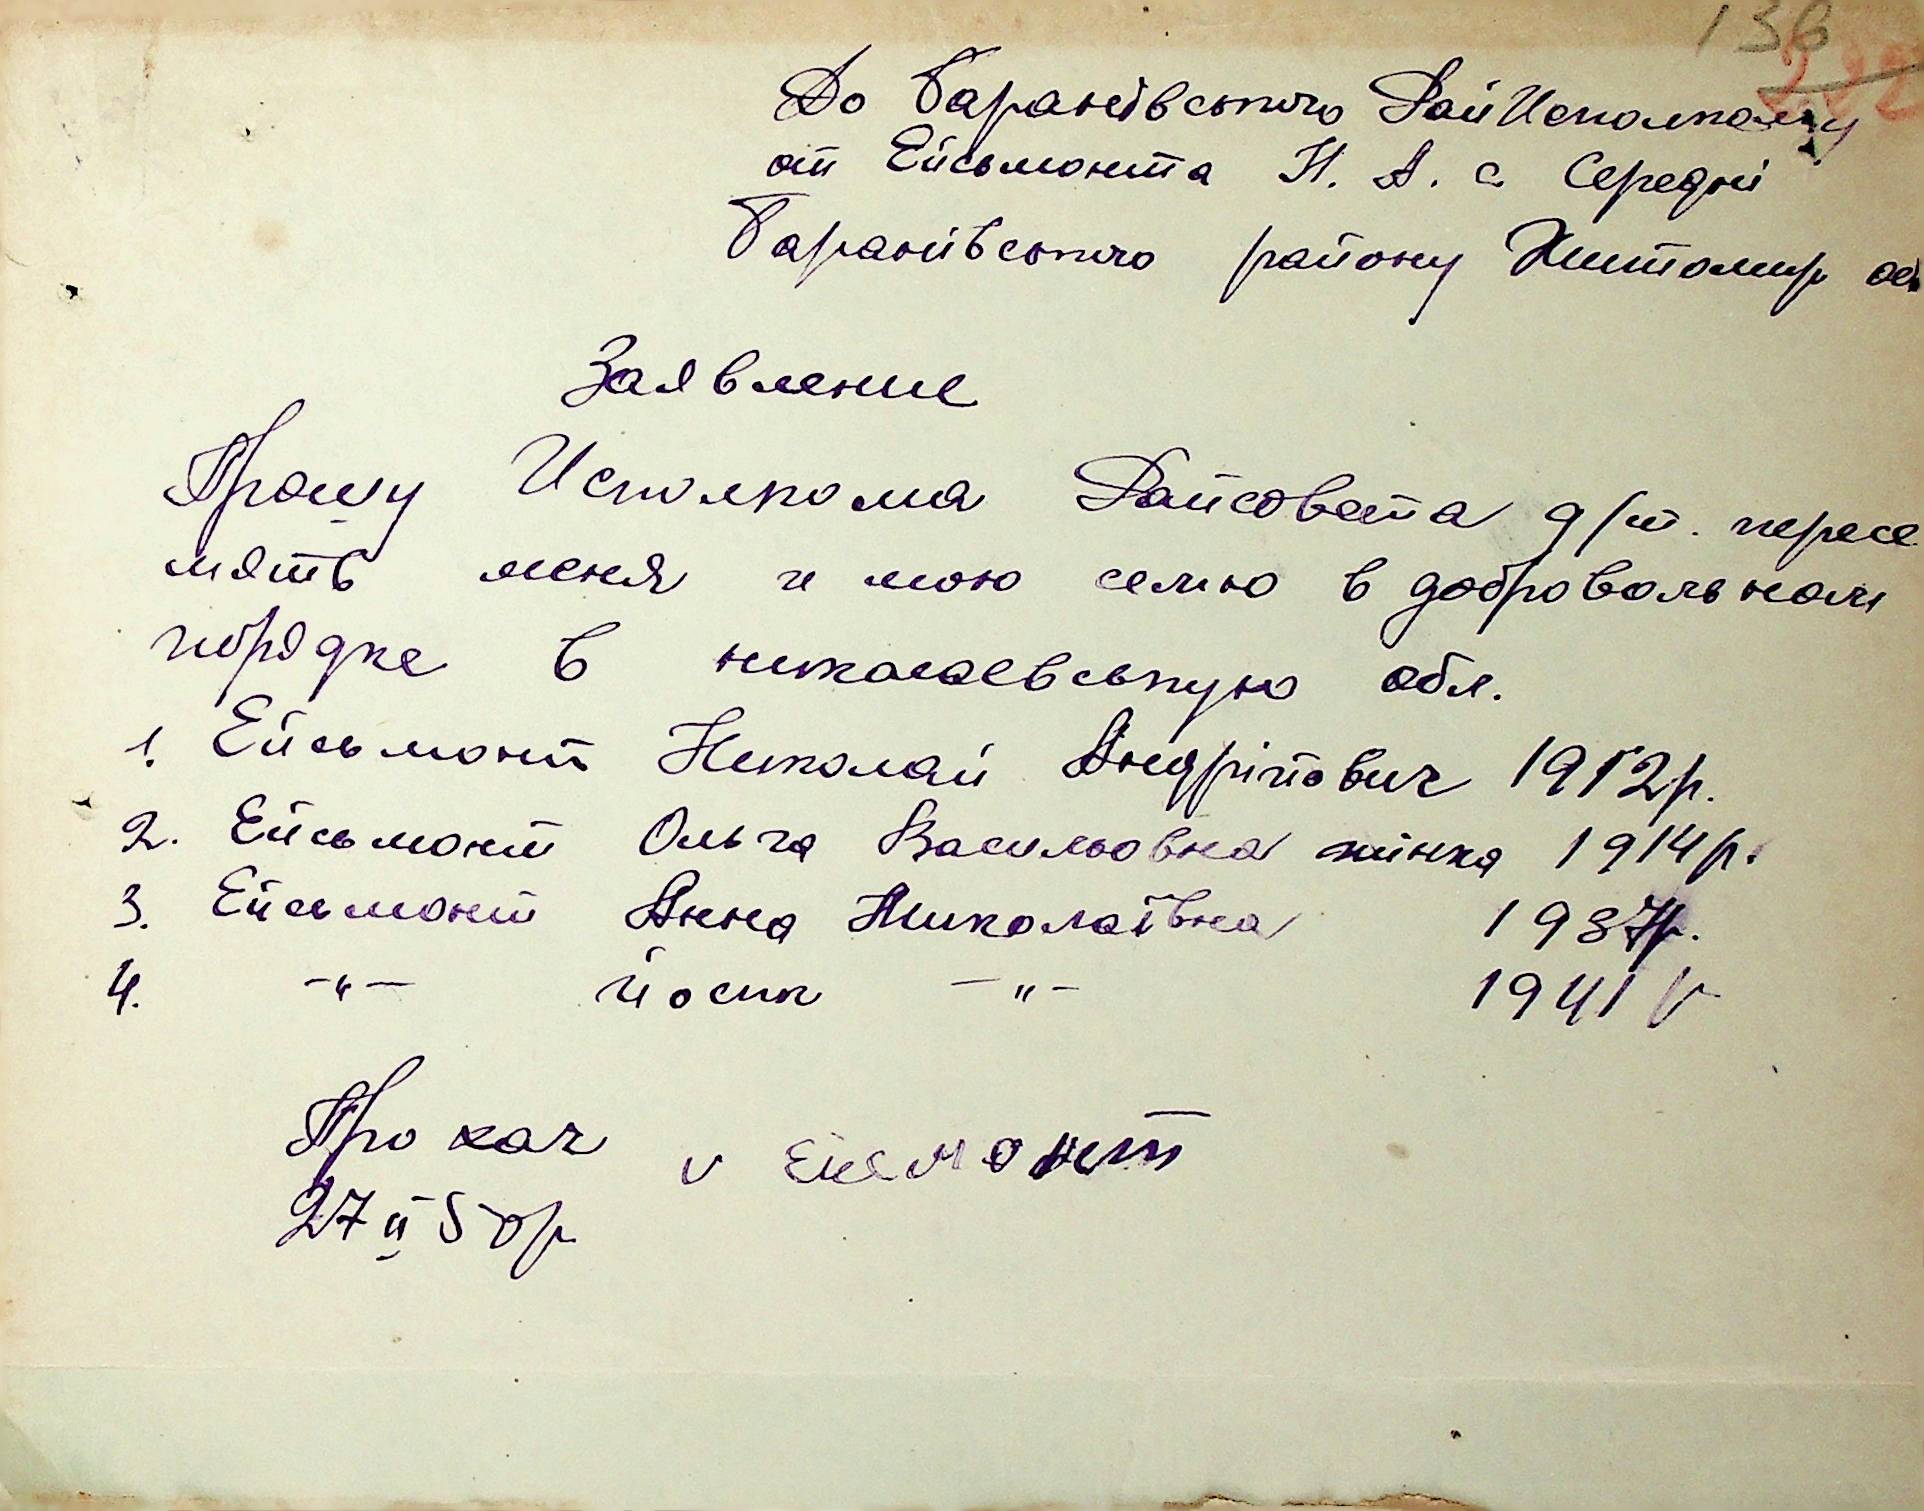 136
222
До Баранівського РайИсполкому
от Ейсьмонта Н. А. с. Середні
Баранівського району Житомир об
Заявление
Прошу Исполкома Райсовета д/т. пересе
лять меня и мою семю в добровольном
порядке в николаевськую обл.
1. Ейсьмонт Николай Андрійович 1912р.
2. Ейсьмонт Ольга Васильовна жінка 1914р.
3. Ейсьмонт Анна Николаївна 1937р.
4. -"- Йосип -"- 1941 р
Прохач
v Ейсмонт
27 ІІ 50р